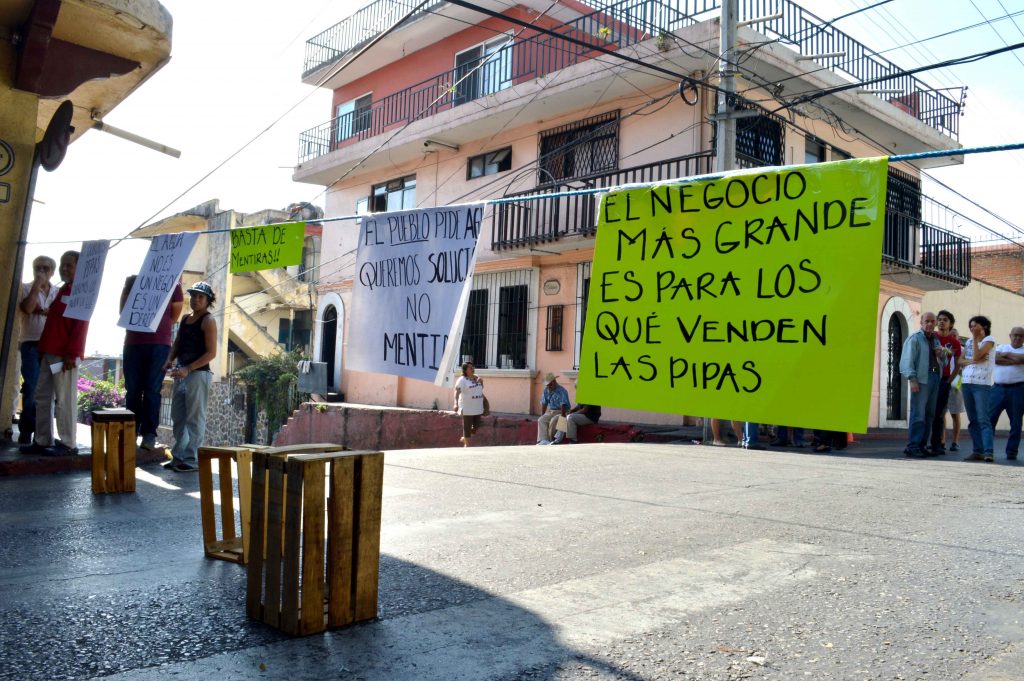 EL AGUA
NO ES
UN NEGOCIO
ES UN
DERE
BASTA DE
MENTIRAS!!
EL PUEBLO PIDE AG
QUEREMOS SOLUCI
NO
MENTI
EL NEGOCIO
MÁS GRANDE
ES PARA LOS
QUÉ VENDEN
LAS PIPAS